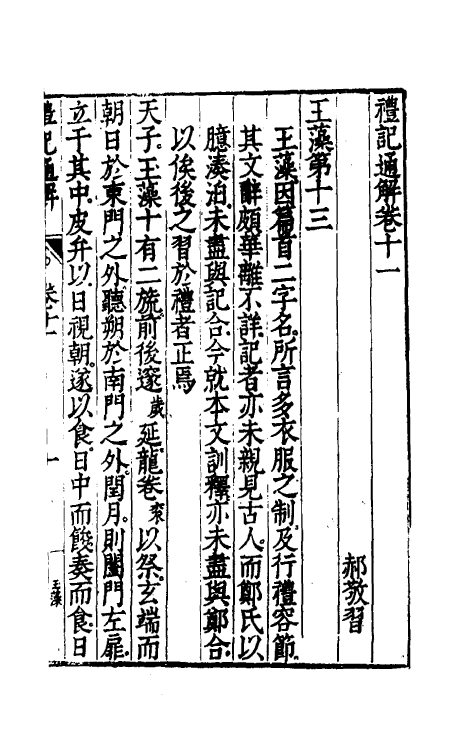 禮記通解卷十一
郝敬習
玉藻第十三
玉藻因篇首二字名所言多衣服之制及行禮容節
其文辭頗華離不詳記者亦未親見古人而鄭氏以
臆湊泊未盡與記合今就本文訓釋亦未盡與鄭合
以俟後之習於禮者正焉
天子玉藻十有二旒前後邃歲延龍卷衮以祭玄端而
朝日於東門之外聽朔於南門之外閏月則闔門左扉
立于其中皮弁以日視朝遂以食日中而餕奏而食日
禮記通解
卷十一
玉藻